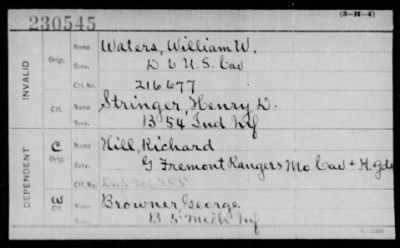 230545
(3-H-4)
INVALID
Orig.
Name Waters, William W.
Serv. D 6 U.S. Cav
Ctf. No. 216677
Ctf.
Name Stringer, Henry D.
Serv. B 54 Ind Inf
DEPENDENT
C
Orig.
Name Hill, Richard
Serv. G Fremont Rangers Mo Cav + H.Gds
Ctf. No.
3
Ctf.
Name Browner George
Serv. B 5 Mich Inf